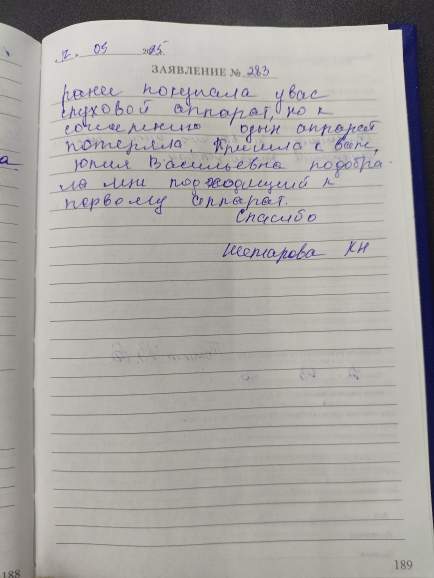 2. 05 2025
ЗАЯВЛЕНИЕ № 283
ранее покупала у вас
слуховой аппарат, но к
сожалению один аппарат
потеряла. Пришла к вам,
Юлия Васильевна подобра-
ла мне подходящий к
первому аппарат.
Спасибо
КН
189
188